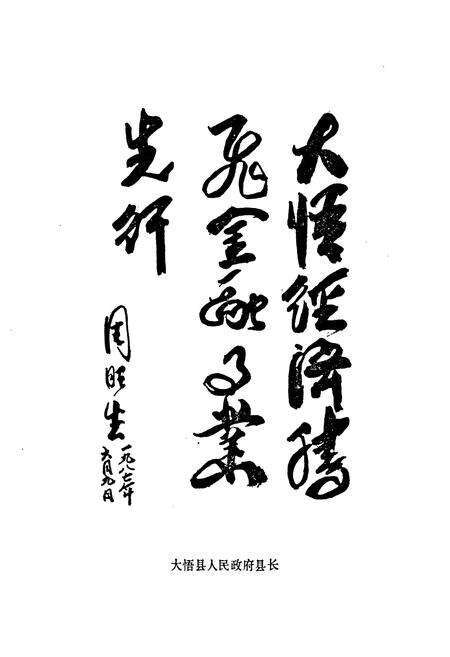 大悟經济腾
飞金融事业
先行
周旺生
一九八七年
六月九日
大悟县人民政府县长